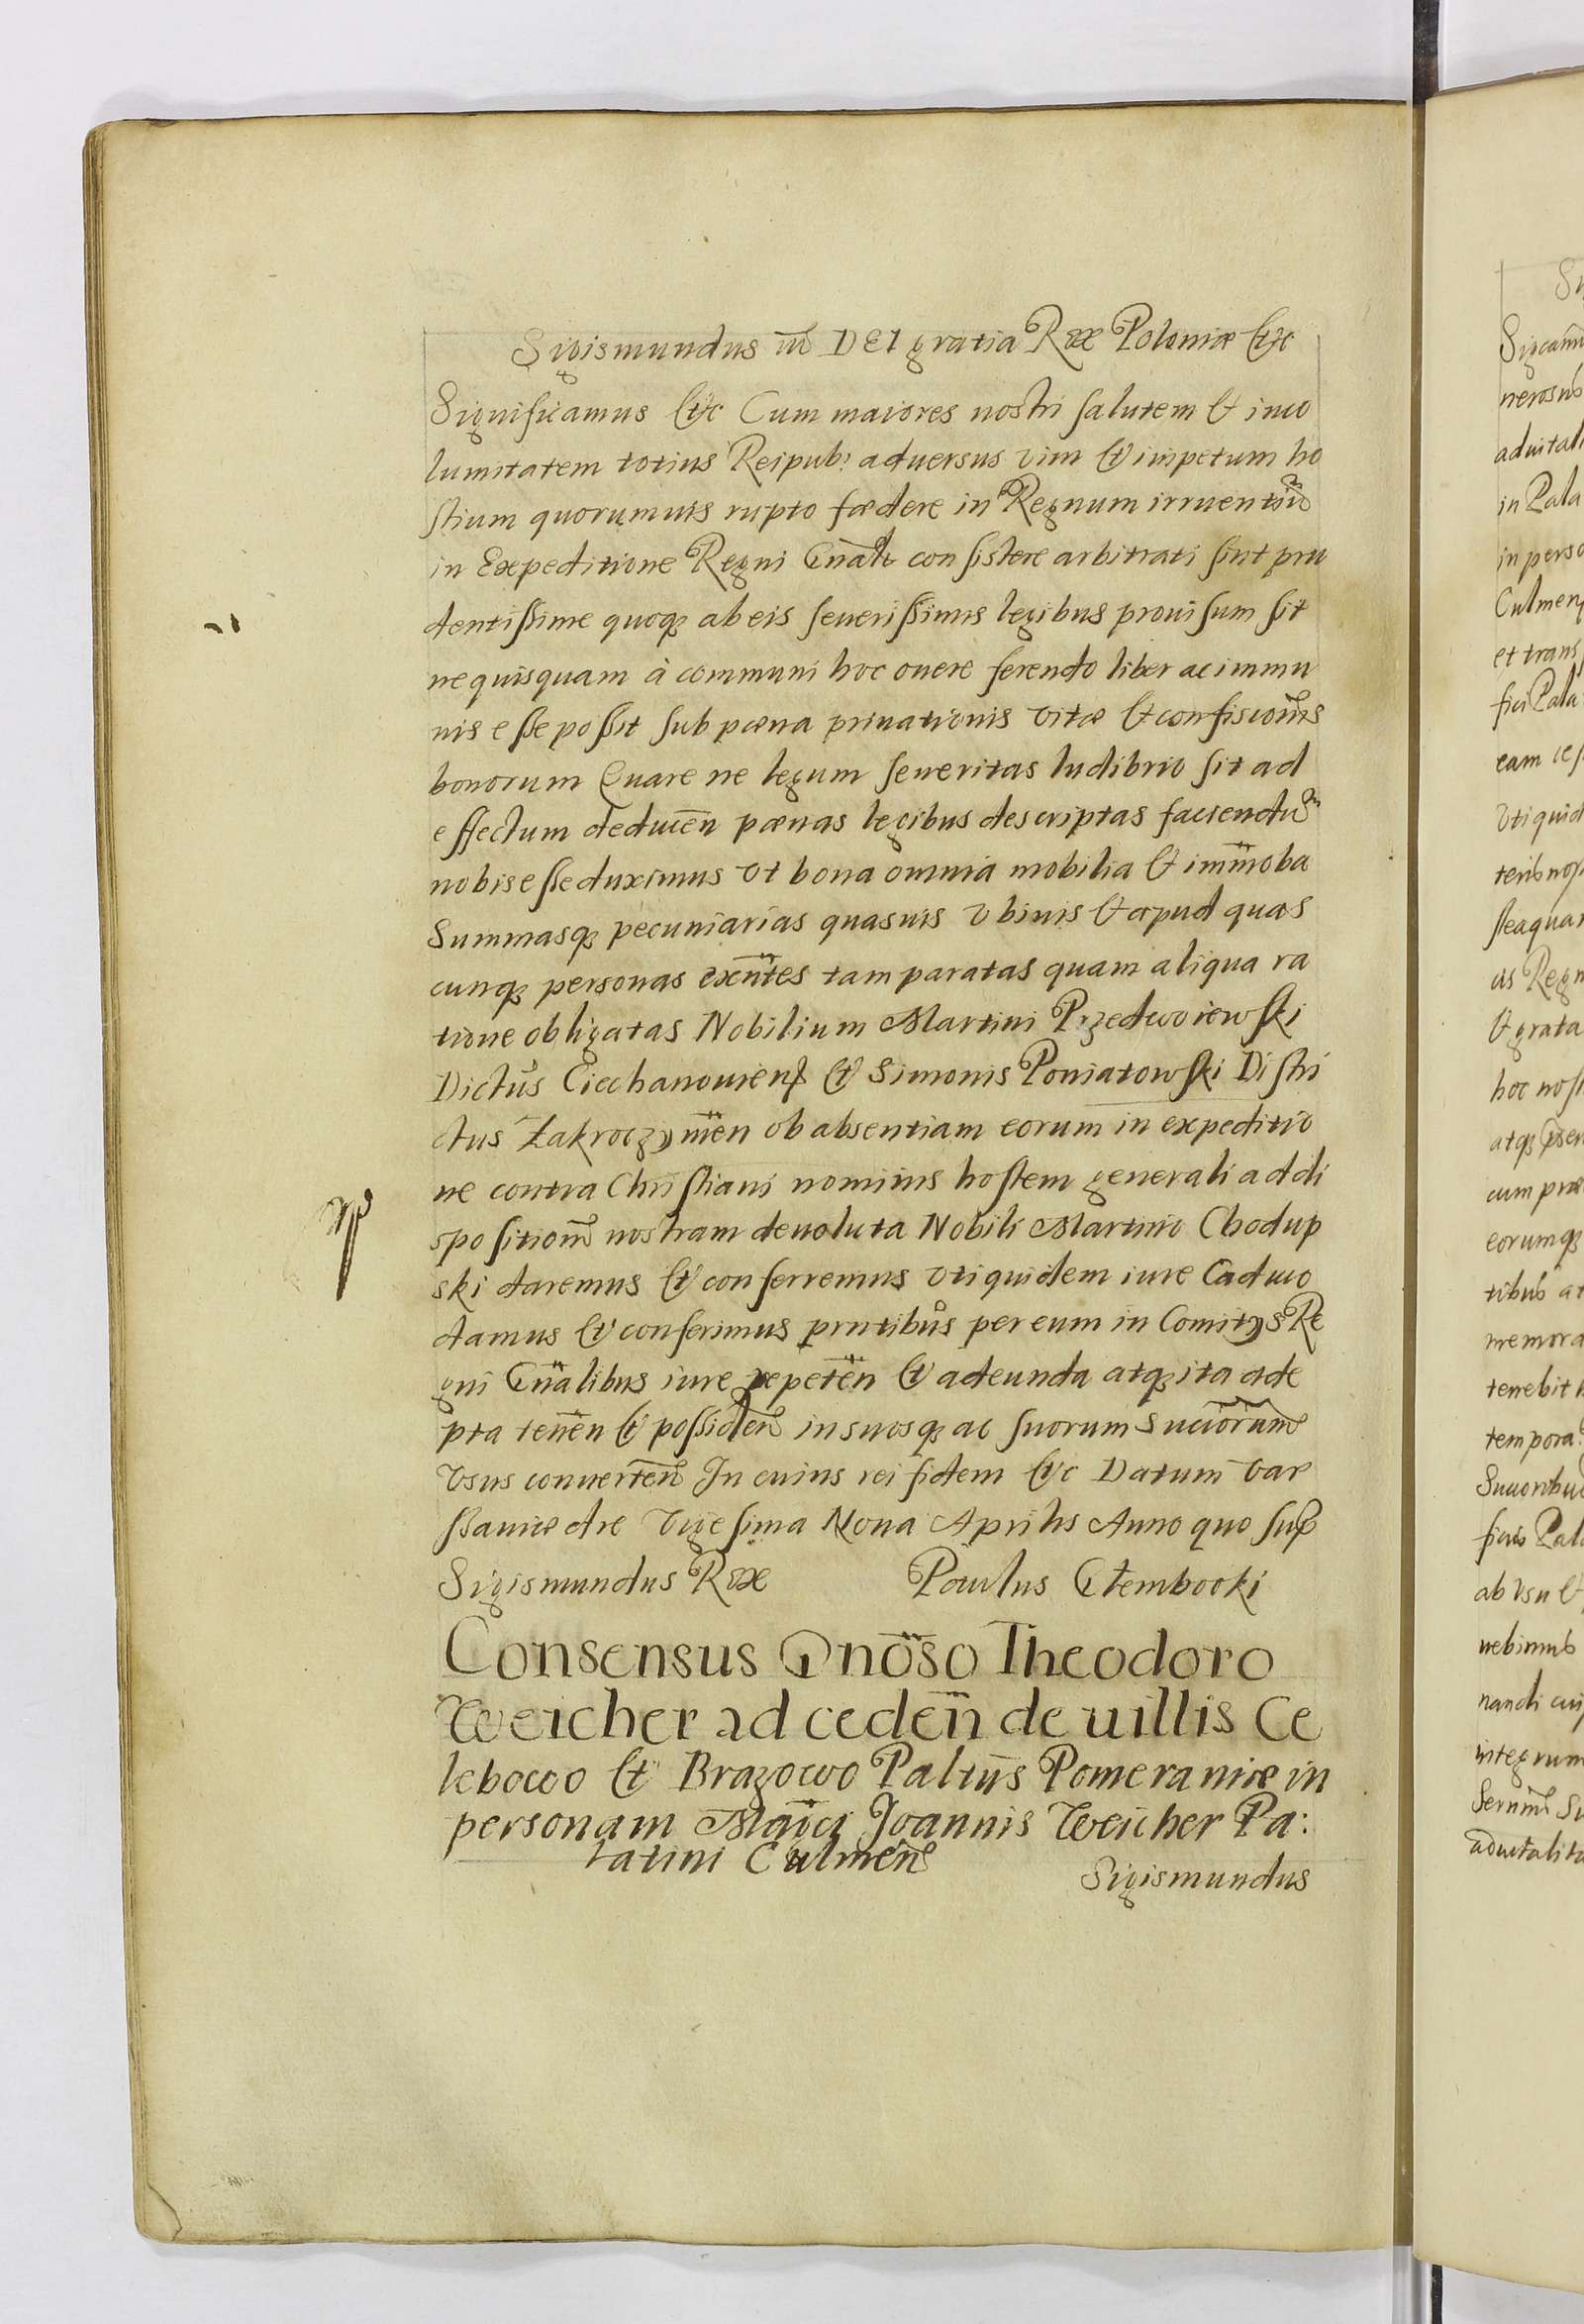 Sigismundus iii DEI gratia Rex Poloniæ &c
Significamus &c Cum maiores nostri salutem & inco
lumitatem totius Reipub: aduersus vim & impetum ho
stium quorumuis rupto fœdere in Regnum irruentiũ
in Expeditione Regni Gnãli consistere arbitrati sint pru
dentissime quoqȝ ab eis seuerissimis legibus prouisum sit
ne quisquam à communi hoc onere ferendo liber ac immu
nis esse possit sub pœna priuationis vitæ & confiscõnis
bonorum Quare ne legum seueritas ludibrio sit ad
effectum deducēn pœnas legibus descriptas faciendũ
nobis esse duximus vt bona omnia mobilia & im̃moba
Summasqȝ pecuniarias quasuis vbiuis & apud quas
cunqȝ personas exñtes tam paratas quam aliqua ra
tione obligatas Nobilium Martini Przedwoiewski
Dictũs Ciechanouiens & Simonis Poniatowski Distri
ctus Zakroczym̃en ob absentiam eorum in expeditio
ne contra Christiani nominis hostem generali ad di
spositionẽ nostram deuoluta Nobili Martino Chodup
ski daremus & conferremus vti quidem iure Caduco
damus & conferimus prñtibus per eum in Comitijs Re
gni Gñalibus iure repetēn & adeunda atqȝ ita ade
pta tenēn & possidēn in suosqȝ ac suorum Succõrum
vsus conuertēn In cuius rei fidem &c Datum Var
ssauiæ die Vigesima Nona Aprilis Anno quo sup
Sigismundus Rex Paulus Głembocki
Consensus Gnõso Theodoro
Weicher ad cedēn de uillis Ce
lebowo & Brazowo Paltũs Pomeraniæ in
personam Mag̃ci Joannis Weicher Pa:
latini Culmēn
Sigismundus